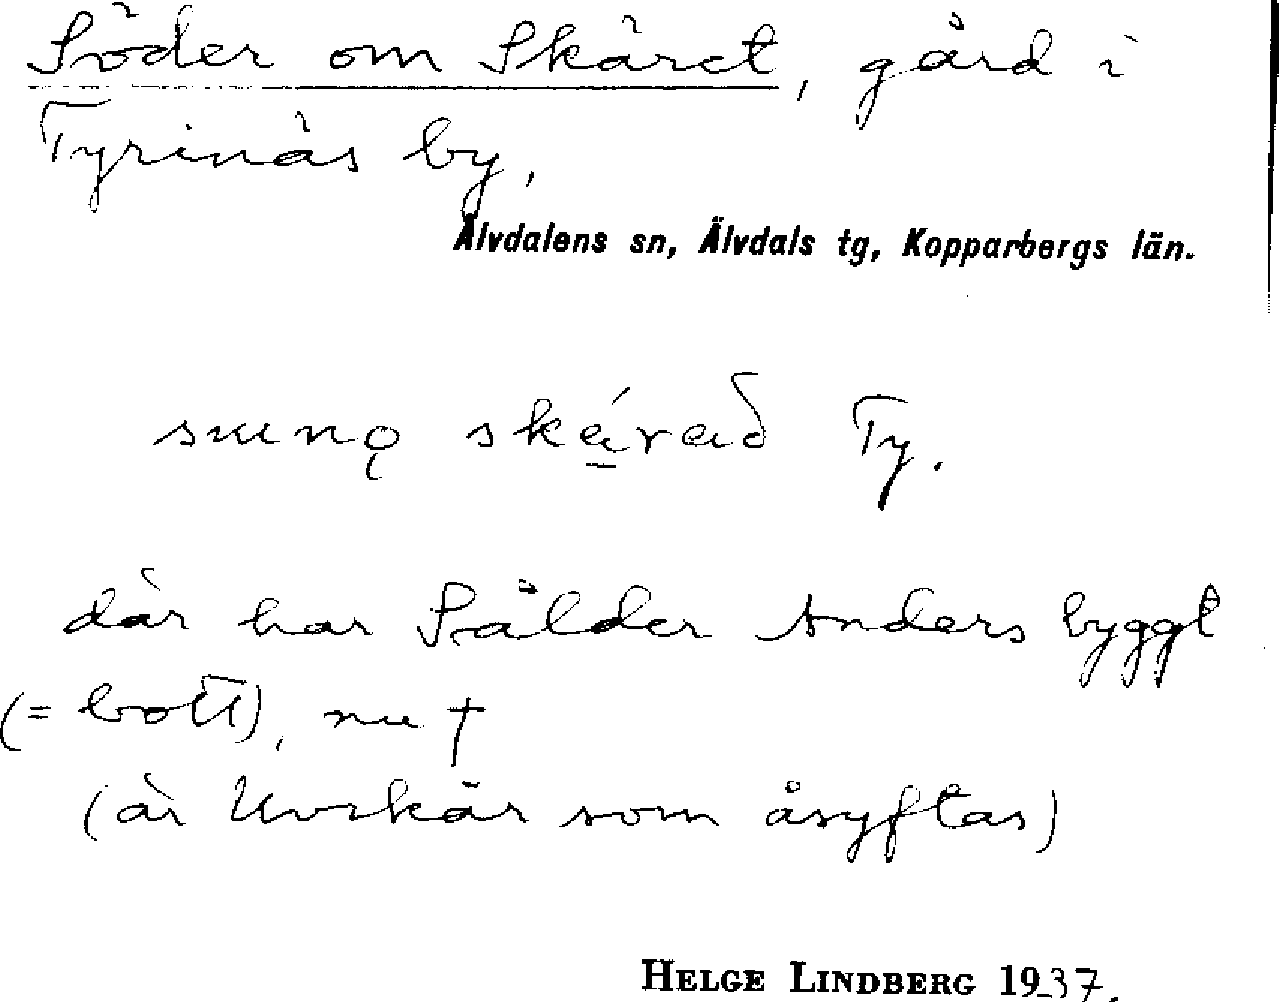 Söder om Skäret, gård i
Tyrinäs by,
Älvdalens sn, Älvdals tg, Kopparbergs län.
sunǫ skárað Ty.
där har Sälder Anders byggt
(= bott), nu †
(är Uvskär som åsyftas)
HELGE LINDBERG 1937.